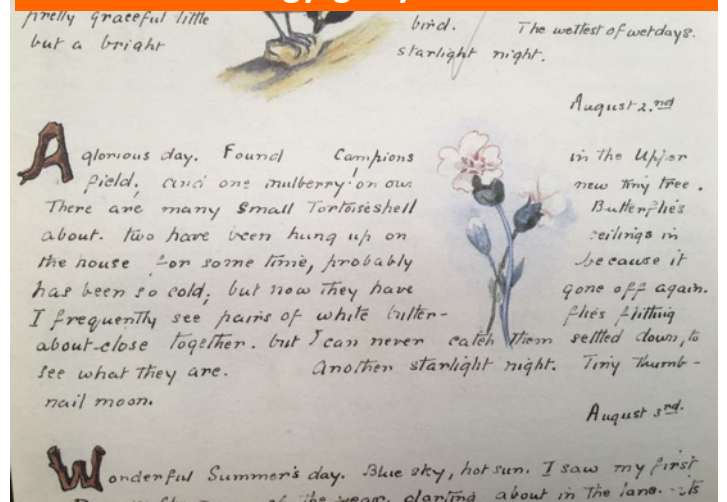 pretty graceful little bird. The wettest of wet days.
but a bright starlight night.
August 2.nd
A glorious day. Found Campions in the Upper
field, and one mulberry on our new tiny tree.
There are many Small Tortoiseshell Butterflies
about. two have been hung up on ceilings in
the house for some time, probably because it
has been so cold, but now they have gone off again.
I frequently see pairs of white butter- flies flitting
about close together. but I can never catch them settled down, to
see what they are. Another starlight night. Tiny thumb-
nail moon.
August 3rd.
Wonderful Summer's day. Blue sky, hot sun. I saw my first
of the year, darting about in the lane. its